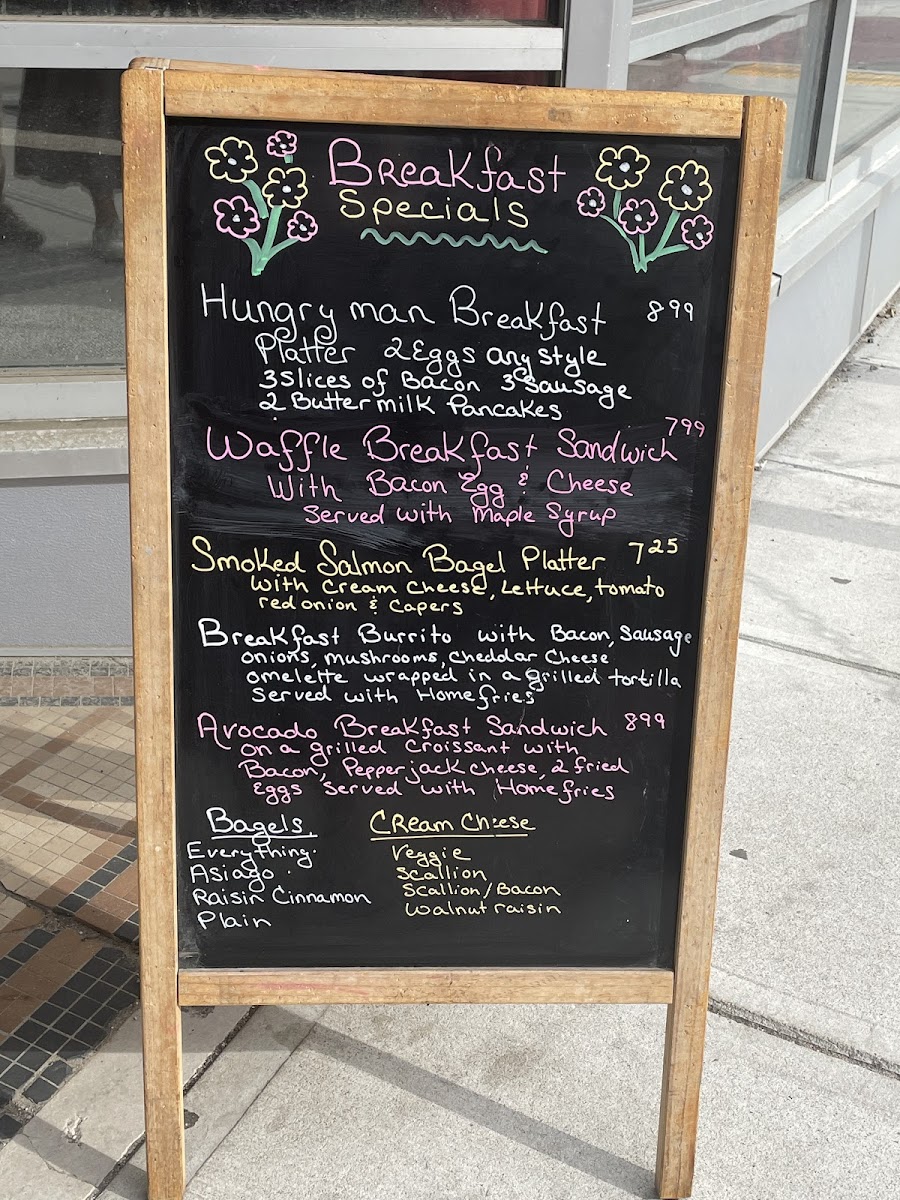 Breakfast
Specials
Hungry man Breakfast 899
Platter 2 Eggs any style
3 Slices of Bacon 3 Sausage
2 Buttermilk Pancakes
Waffle Breakfast Sandwich 799
With Bacon Egg & Cheese
Served with Maple Syrup
Smoked Salmon Bagel Platter 725
with Cream Cheese, Lettuce, tomato
red onion & Capers
Breakfast Burrito with Bacon, Sausage
onions, mushrooms, cheddar cheese
omelette wrapped in a grilled tortilla
Served with Homefries
Avocado Breakfast Sandwich 899
on a grilled Croissant with
Bacon, Pepperjack cheese, 2 fried
Eggs Served with Homefries
Bagels. Cream Cheese
Everything Veggie
Asiago Scallion
Raisin Cinnamon Scallion/Bacon
Plain Walnut raisin